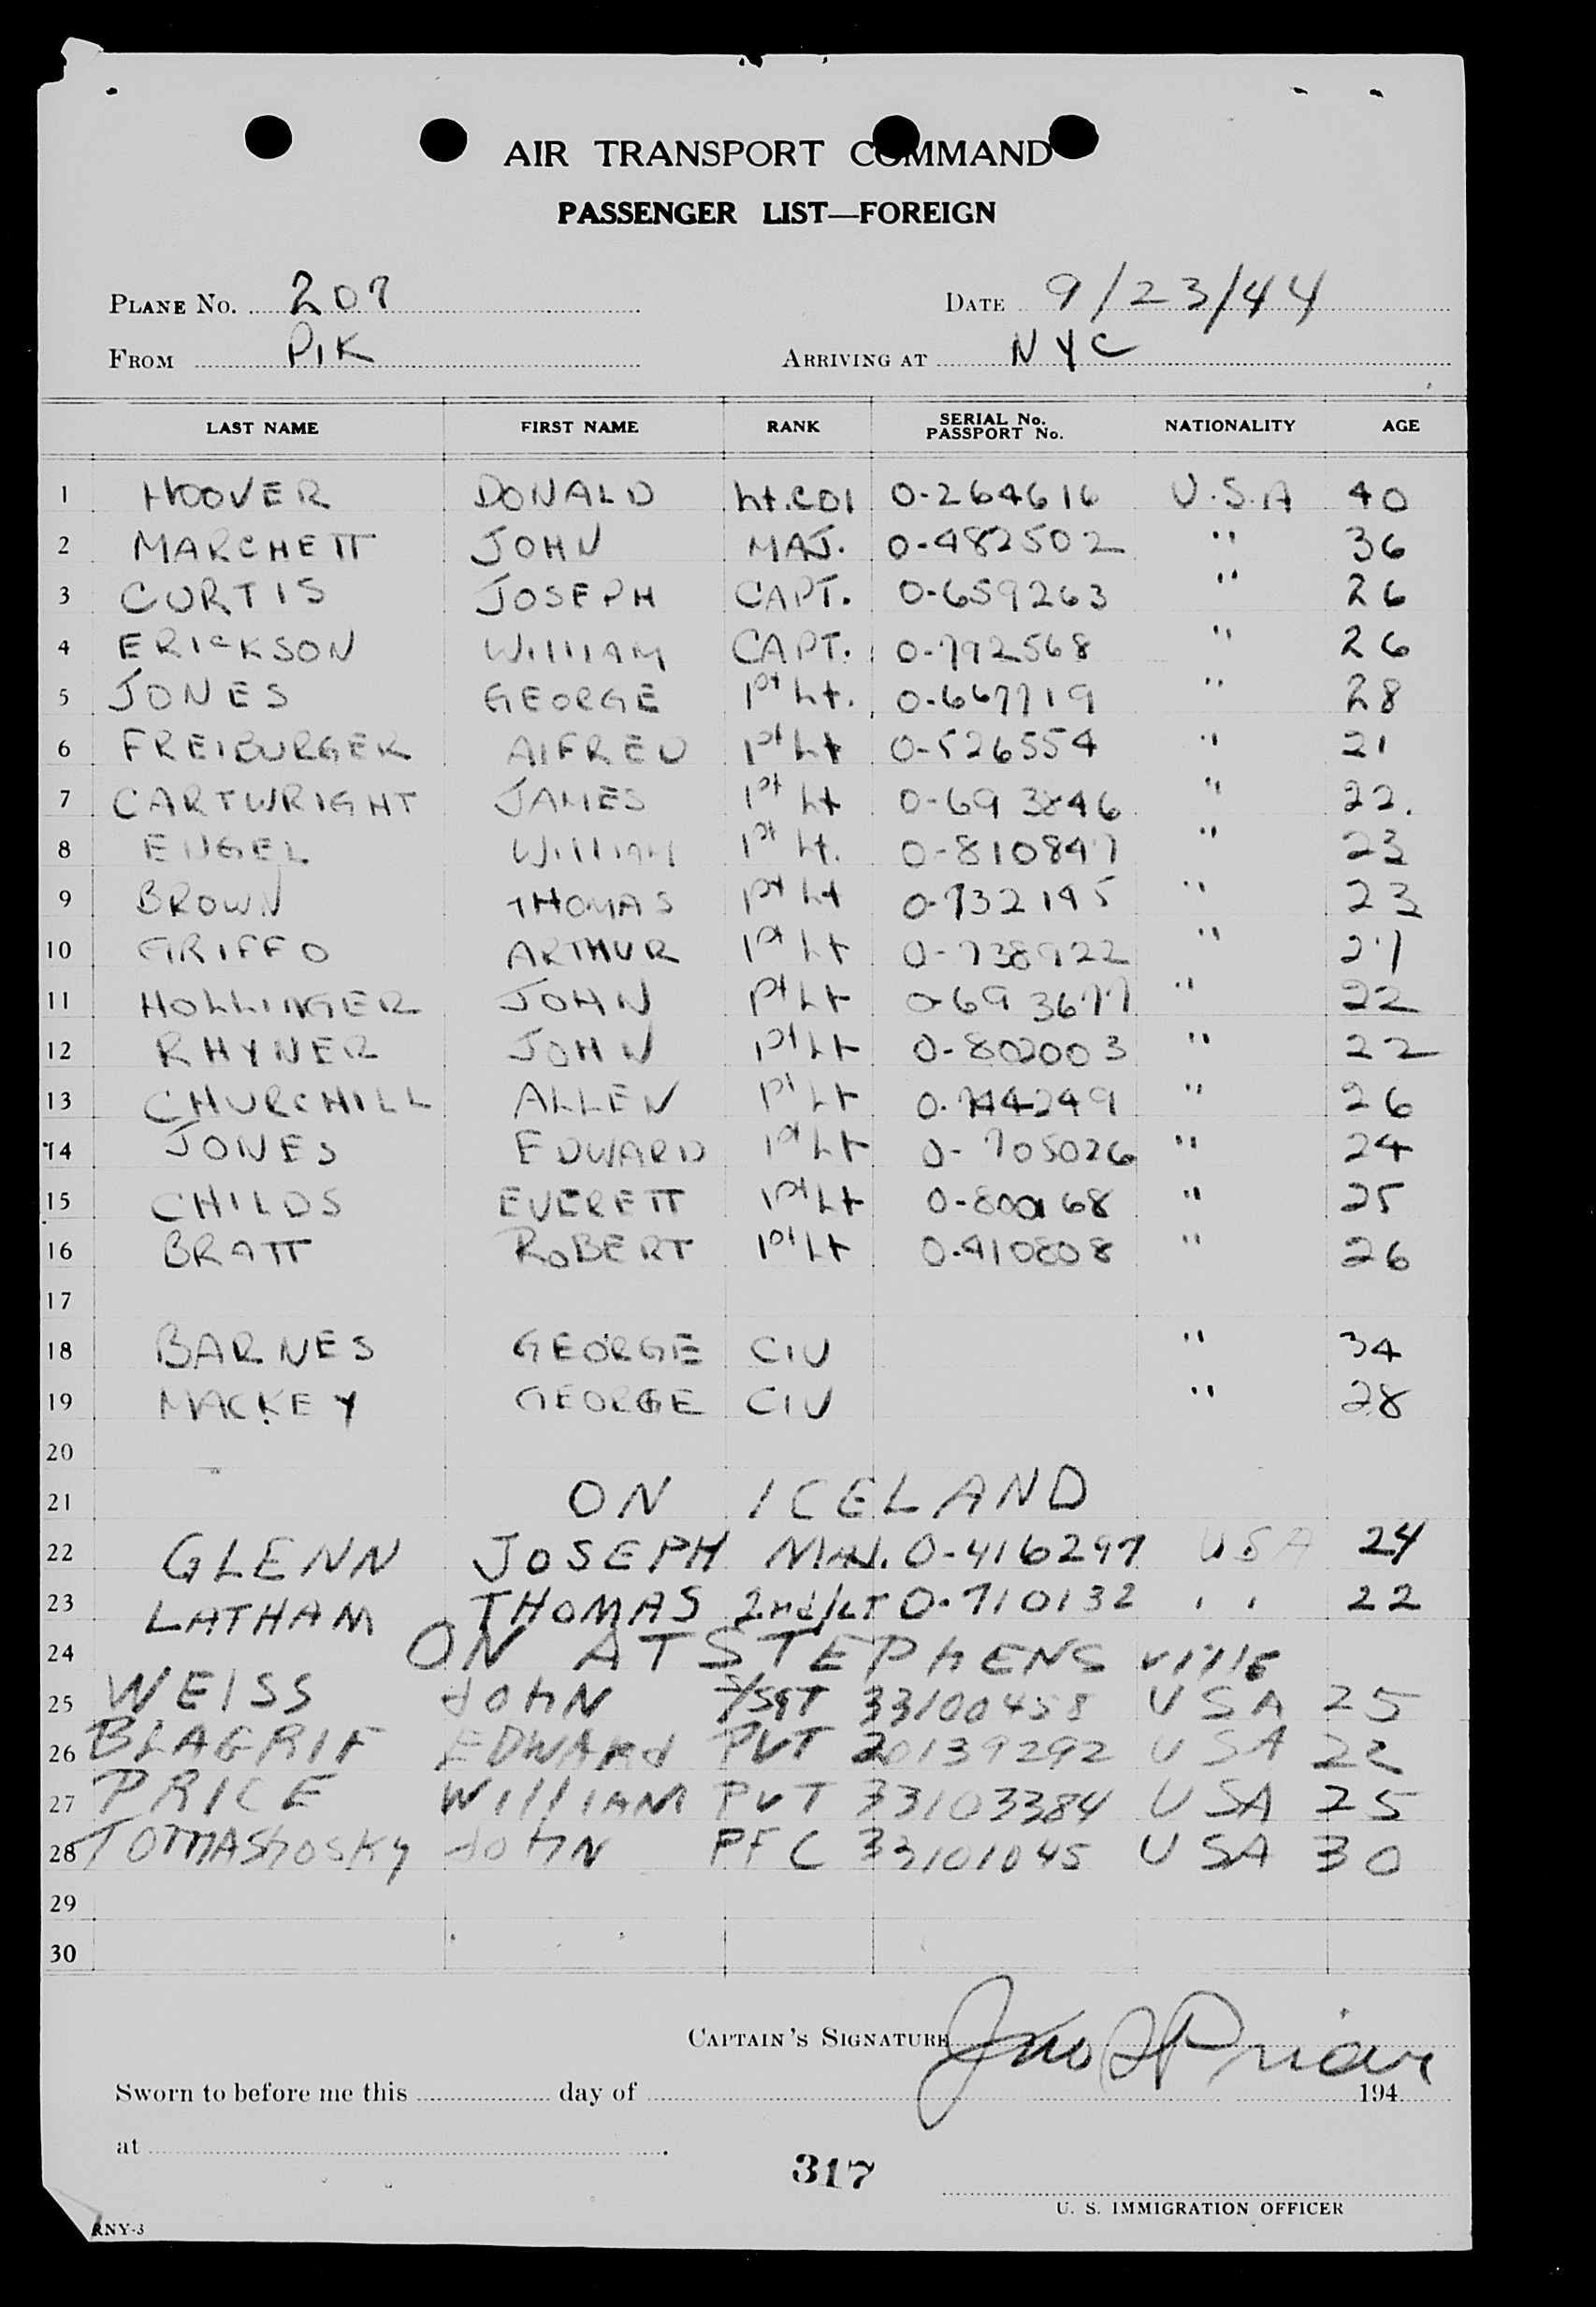 AIR TRANSPORT COMMAND
PASSENGER LIST—FOREIGN
PLANE NO. 207 DATE 9/23/44
FROM PIK ARRIVING AT NYC
LAST NAME FIRST NAME RANK SERIAL No. PASSPORT No. NATIONALITY AGE
1 HOOVER DONALD Lt.COl 0-264616 U.S.A 40
2 MARCHETT JOHN MAJ. 0-482502 " 36
3 CURTIS JOSEPH CAPT. 0-659263 " 26
4 ERICKSON WIllIAM CAPT. 0-792568 " 26
5 JONES GEORGE 1st Lt. 0-667719 " 28
6 FREIBURGER AlFRED 1st Lt 0-526554 " 21
7 CARTWRIGHT JAMES 1st Lt 0-693846 " 22.
8 ENGEL WIllIAM 1st Lt. 0-810847 " 23
9 BROWN THOMAS 1st Lt 0-732195 " 23
10 GRIFFO ARTHUR 1st Lt 0-738922 " 27
11 HOLLINGER JOHN 1st Lt 0-693677 " 22
12 RHYNER JOHN 1st Lt 0-802003 " 22
13 CHURCHILL ALLEN 1st Lt " 26
14 JONES EDWARD 1st Lt 0-705026 " 24
15 CHILDS EVERETT 1st Lt " 25
16 BRATT ROBERT 1st Lt 0-410808 " 26
17
18 BARNES GEORGE CIV " 34
19 MACKEY GEORGE CIV " 28
20
21 ON ICELAND
22 GLENN JOSEPH MAJ. 0-416297 USA 24
23 LATHAM THOMAS 2nd/LT 0-710132 " 22
24 ON AT STEPHENS vIllE
25 WEISS JOhN S/SGT 33100458 USA 25
26 BLAGRIF EDWARd PVT 20139292 USA 22
27 PRICE WIllIAM PVT 33103384 USA 25
28 TOMAShOSKy JOhN PFC 33101045 USA 30
29
30
CAPTAIN'S SIGNATURE
Sworn to before me this day of 194
at
317
U. S. IMMIGRATION OFFICER
RNY-3